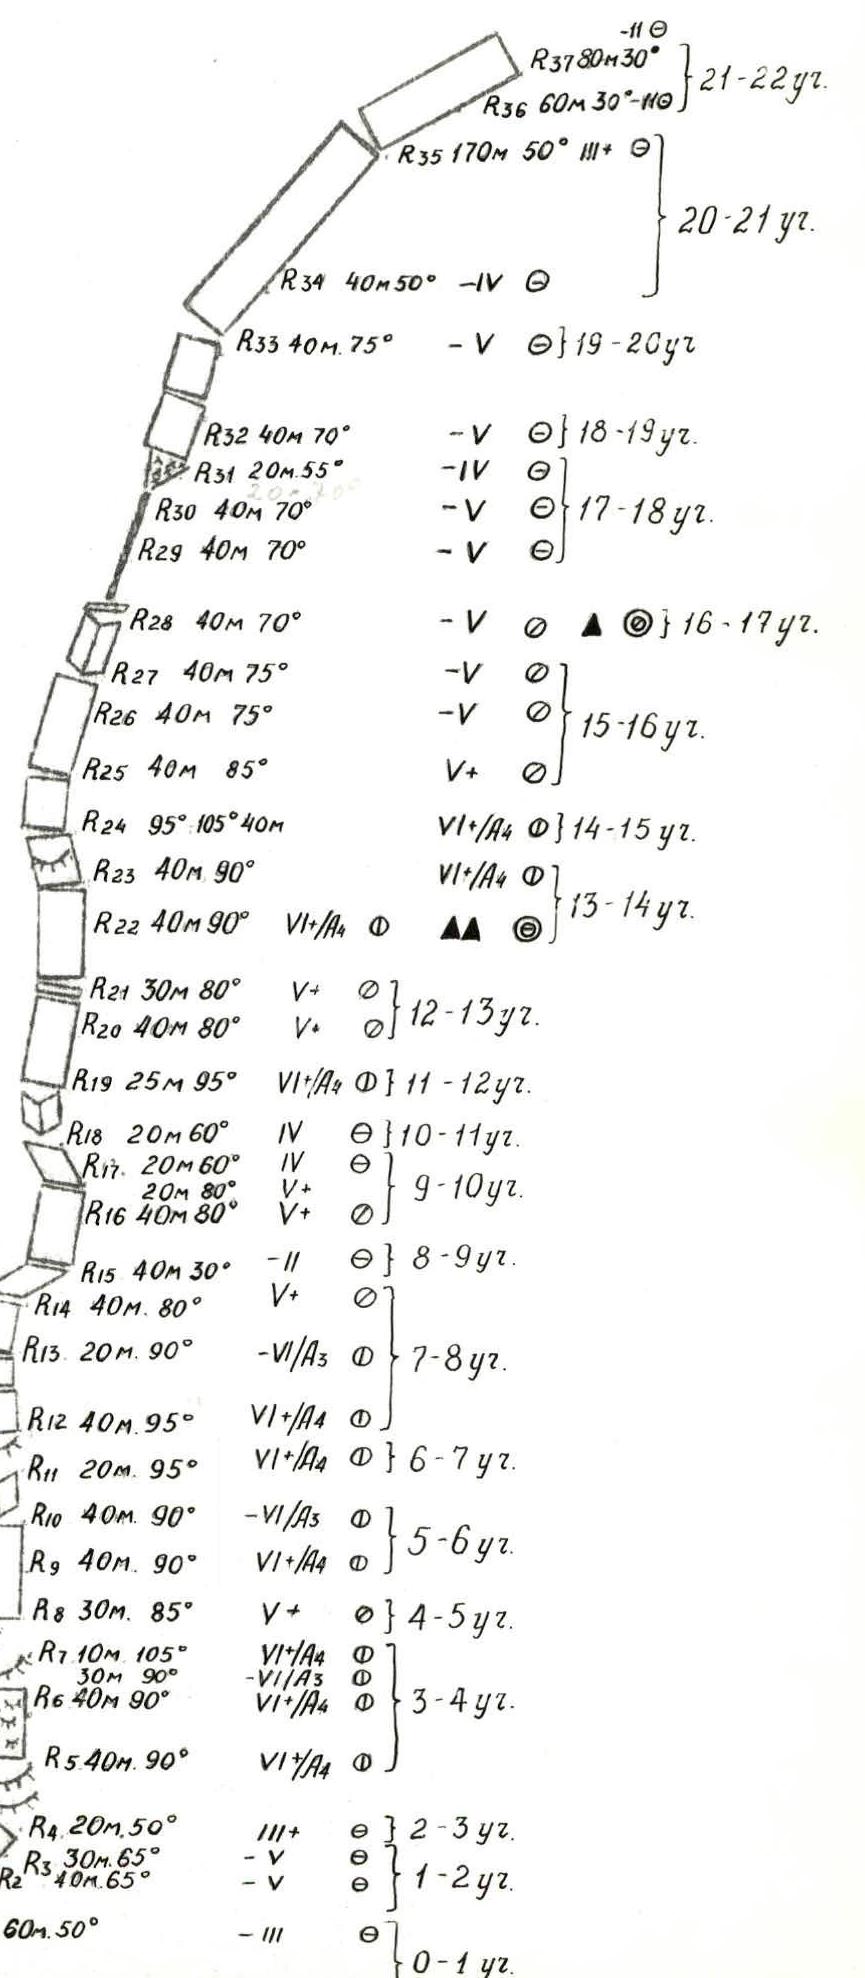 -II
R37 80м 30° } 21-22 уч.
R36 60м 30° -II
R35 170м 50° III+
} 20-21 уч.
R34 40м 50° -IV
R33 40м. 75° -V } 19-20 уч
R32 40м 70° -V } 18-19 уч.
R31 20м. 55° -IV
R30 40м 70° -V } 17-18 уч.
R29 40м 70° -V
R28 40м 70° -V } 16-17 уч.
R27 40м 75° -V
R26 40м 75° -V } 15-16 уч.
R25 40м 85° V+
R24 95° 105° 40м VI+/A4 } 14-15 уч.
R23 40м 90° VI+/A4
} 13-14 уч.
R22 40м 90° VI+/A4
R21 30м 80° V+
} 12-13 уч.
R20 40м 80° V+
R19 25м 95° VI+/A4 } 11-12 уч.
R18 20м 60° IV } 10-11 уч.
R17. 20м 60° IV
20м 80° V+ } 9-10 уч.
R16 40м 80° V+
R15 40м 30° -II } 8-9 уч.
R14 40м. 80° V+
R13. 20м. 90° -VI/A3 } 7-8 уч.
R12 40м. 95° VI+/A4
R11 20м. 95° VI+/A4 } 6-7 уч.
R10 40м. 90° -VI/A3
} 5-6 уч.
R9 40м. 90° VI+/A4
R8 30м. 85° V+ } 4-5 уч.
R7 10м. 105° VI+/A4
30м 90° -VI/A3
R6 40м 90° VI+/A4 } 3-4 уч.
R5 40м. 90° VI+/A4
R4. 20м. 50° III+ } 2-3 уч.
R3 30м. 65° -V
R2 40м. 65° -V } 1-2 уч.
60м. 50° -III
} 0-1 уч.